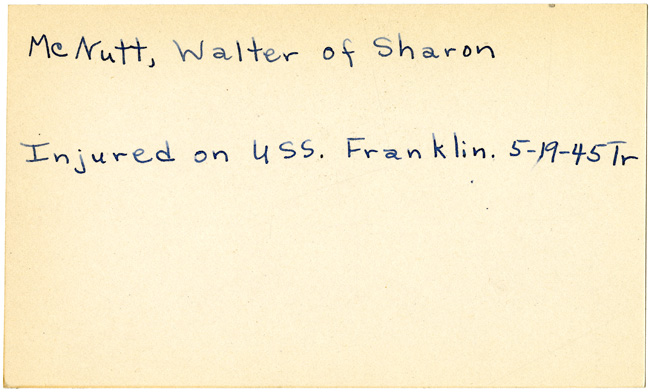 McNutt, Walter of Sharon
Injured on USS. Franklin. 5-19-45 Tr